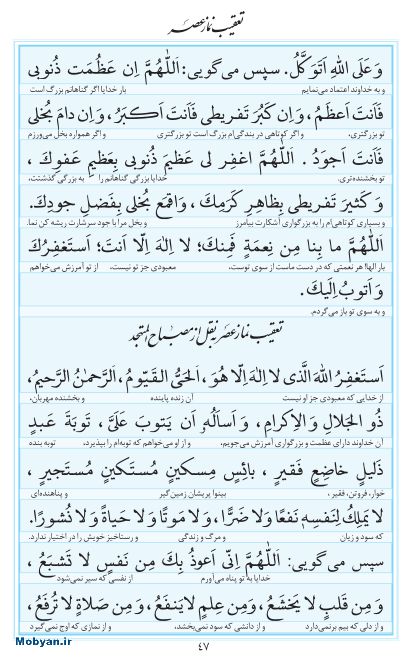 تعقیب نماز عصر
وَ عَلَی اللهِ اَتَوَکَّلُ. سپس می‌گویی: اَللّٰهُمَّ اِن عَظُمَت ذُنوبی
و به خداوند اعتماد می‌نمایم بار خدایا اگر گناهانم بزرگ است
فَاَنتَ اَعظَمُ، وَ اِن کَبُرَ تَفریطی فَاَنتَ اَکبَرُ، وَ اِن دامَ بُخلی
تو بزرگتری، و اگر کوتاهی در بندگی‌ام بزرگ است تو بزرگتری و اگر همواره بخل می‌ورزم
فَاَنتَ اَجوَدُ. اَللّٰهُمَّ اغفِر لی عَظیمَ ذُنوبی بِعَظیمِ عَفوِکَ،
تو بخشنده‌تری. خدایا بزرگی گناهانم را به بزرگی گذشتت،
وَ کَثیرَ تَفریطی بِظاهِرِ کَرَمِکَ، وَ اقمَع بُخلی بِفَضلِ جودِکَ.
و بسیاری کوتاهی‌ام را به بزرگواری آشکارت بیامرز و بخل مرا با جود سرشارت ریشه کن نما.
اَللّٰهُمَّ ما بِنا مِن نِعمَةٍ فَمِنکَ؛ لا اِلٰهَ اِلّا اَنتَ؛ اَستَغفِرُکَ
بار الها! هر نعمتی که در دست ماست از سوی توست، معبودی جز تو نیست، از تو آمرزش می‌خواهم
وَ اَتوبُ اِلَیکَ.
و به سوی تو باز می‌گردم.
تعقیب نماز عصر به نقل از مصباح المتهجد
اَستَغفِرُ اللهَ الَّذی لا اِلٰهَ اِلّا هُوَ، اَلحَیُّ القَیّومُ، اَلرَّحمٰنُ الرَّحیمُ،
از خدایی که معبودی جز او نیست آن زنده پاینده و بخشنده مهربان،
ذُو الجَلالِ وَ الاِکرامِ، وَ اَساَلُهُ اَن یَتوبَ عَلَیَّ، تَوبَةَ عَبدٍ
آن خداوند دارای عظمت و بزرگواری آمرزش می‌جویم، و از او می‌خواهم که توبه‌ام را بپذیرد، توبه بنده
ذَلیلٍ خاضِعٍ فَقیرٍ، بائِسٍ مِسکینٍ مُستَکینٍ مُستَجیرٍ،
خوار، فروتن، فقیر، بینوا پریشان زمین‌گیر و پناهنده‌ای
لا یَملِکُ لِنَفسِهِ نَفعًا وَ لا ضَرًّا، وَ لا مَوتًا وَ لا حَیاةً وَ لا نُشورًا.
که سود و زیان و مرگ و زندگی و رستاخیز خویش را در اختیار ندارد.
سپس می‌گویی: اَللّٰهُمَّ اِنّی اَعوذُ بِکَ مِن نَفسٍ لا تَشبَعُ،
خدایا به تو پناه می‌آورم از نفسی که سیر نمی‌شود
وَ مِن قَلبٍ لا یَخشَعُ، وَ مِن عِلمٍ لا یَنفَعُ، وَ مِن صَلاةٍ لا تُرفَعُ،
و از دلی که بیم برنمی‌دارد و از دانشی که سود نمی‌بخشد، و از نمازی که اوج نمی‌گیرد
۴۷
Mobyan.ir